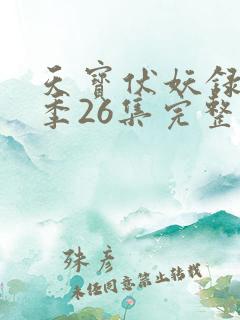 天寶伏妖録
季26集完整
殊彦
未经同意禁止转载